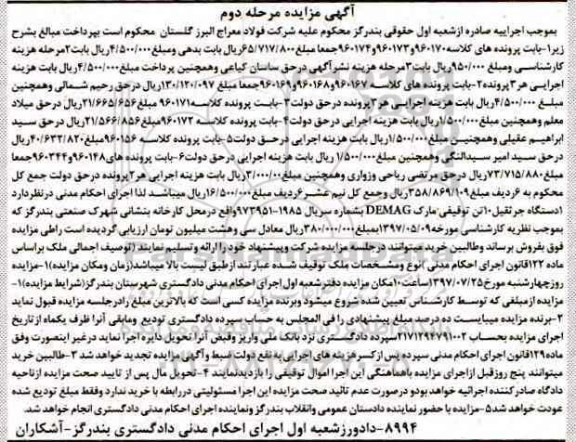 آگهی مزایده مرحله دوم
بموجب اجراییه صادره ازشعبه اول حقوقی بندرگز محکوم علیه شرکت فولاد معراج البرز گلستان محکوم است بپرداخت مبالغ بشرح
زیر۱-بابت پرونده های کلاسه ۹۶۰۱۷۰و۹۶۰۱۷۳و۹۶۰۱۷۴جمعا مبلغ ۶۵/۷۱۷/۸۰۰ریال بابت بدهی ومبلغ ۴/۵۰۰/۰۰۰ریال بابت۲مرحله هزینه
کارشناسی ومبلغ ۹۵۰/۰۰۰ریال بابت ۳مرحله هزینه نشرآگهی درحق ساسان کیاعی وهمچنین پرداخت مبلغ ۴/۵۰۰/۰۰۰ریال هزینه
اجرایی هر۳پرونده۲-بابت پرونده های کلاسه ۹۶۰۱۶۷و۹۶۰۱۶۸و۹۶۰۱۶۹جمعا مبلغ ۱۳۰/۱۲۰/۰۹۷ریال درحق رحیم شمالی وهمچنین
مبلغ ۴/۵۰۰/۰۰۰ریال بابت هزینه اجرایی هر۳پرونده درحق دولت۳-بابت پرونده کلاسه ۹۶۰۱۷۱مبلغ ۲۱/۶۶۵/۶۵۶ریال درحق میلاد
معلم وهمچنین مبلغ ۱/۵۰۰/۰۰۰ریال بابت هزینه اجرایی درحق دولت۴-بابت پرونده کلاسه ۹۶۰۱۷۲مبلغ ۲۱/۵۶۶/۸۵۶ریال درحق سید
ابراهیم عقیلی وهمچنین مبلغ ۱/۵۰۰/۰۰۰ریال بابت هزینه اجرایی درحق دولت۵-بابت پرونده کلاسه ۹۶۰۱۵۶مبلغ ۴۰/۶۳۳/۸۲۰ریال
درحق سید امیر سیدالنگی وهمچنین مبلغ ۱/۵۰۰/۰۰۰ریال بابت هزینه اجرایی درحق دولت۶-بابت پرونده های ۹۶۰۱۴۸و۹۶۰۳۴۴جمعا
مبلغ ۷۳/۷۱۵/۸۸۰ریال درحق مرتضی ریاحی وزواری وهمچنین مبلغ ۳/۰۰۰/۰۰۰ریال بابت هزینه اجرایی هر۲پرونده درحق دولت جمع کل
محکوم به ۶ردیف مبلغ ۳۵۸/۸۶۹/۱۰۹ریال وجمع کل نیم عشر ۶ردیف مبلغ ۱۶/۵۰۰/۰۰۰ریال میباشد لذا اجرای احکام مدنی درنظردارد
۱دستگاه جرثقیل ۱۰تن توقیفی مارک DEMAG بشماره سریال ۱۹۸۵-۹۷۳۹۵۱واقع درمحل کارخانه بنشانی شهرک صنعتی بندرگز که
بموجب نظریه کارشناسی مورخه۱۳۹۷/۰۵/۰۹بمبلغ۳۸۰/۰۰۰/۰۰۰ریال معادل سی وهشت میلیون تومان ارزیابی گردیده است راطی مزایده
فوق بفروش برساند وطالبین خرید میتوانند درجلسه مزایده شرکت وپیشنهاد خود را ارائه وتسلیم نمایند (توصیف اجمالی ملک براساس
ماده ۱۲۲قانون اجرای احکام مدنی )نوع ومشخصات ملک توقیف شده عبارتند ازطبق لیست بالا میباشد(زمان ومکان مزایده)۱-مزایده
روزچهارشنبه مورخ۱۳۹۷/۰۷/۲۵ساعت۱۰مکان مزایده دفترشعبه اول اجرای احکام مدنی دادگستری شهرستان بندرگز(شرایط مزایده)۱-
مزایده ازمبلغی که توسط کارشناس تعیین شده شروع میشود وبرنده مزایده کسی است که بالاترین مبلغ رادرجلسه مزایده قبول نماید
۲-برنده مزایده میبایست ده درصد مبلغ پیشنهادی را فی المجلس به حساب سپرده دادگستری تودیع ومابقی آنرا ظرف یکماه ازتاریخ
اجرای مزایده بحساب ۲۱۷۱۲۹۴۷۹۱۰۰۲سپرده دادگستری نزد بانک ملی واریز وقبض آنرا تحویل دایره اجرا نماید درغیر اینصورت وفق
ماده۱۲۹قانون اجرای احکام مدنی سپرده پس ازکسرهزینه های اجرای به نفع دولت ضبط وآگهی مزایده تجدید خواهد شد ۳-طالبین خرید
میتوانند پنج روزقبل ازاجرای مزایده باهماهنگی این اجرا اموال توقیفی را بازدیدنمایند ۴-تحویل مال پس از تایید صحت مزایده ازناحیه
دادگاه صادرکننده اجرائیه خواهد بودو در صورت عدم تائید صحت مزایده این اجرا مسئولیتی دررابطه با خرید ندارد وفقط مبلغ تودیع شده
عودت خواهد شد۵-مزایده با حضور نماینده دادستان عمومی وانقلاب بندرگز ونماینده اجرای احکام مدنی دادگستری انجام خواهد شد.
۸۹۹۴-دادورزشعبه اول اجرای احکام مدنی دادگستری بندرگز-آشکاران